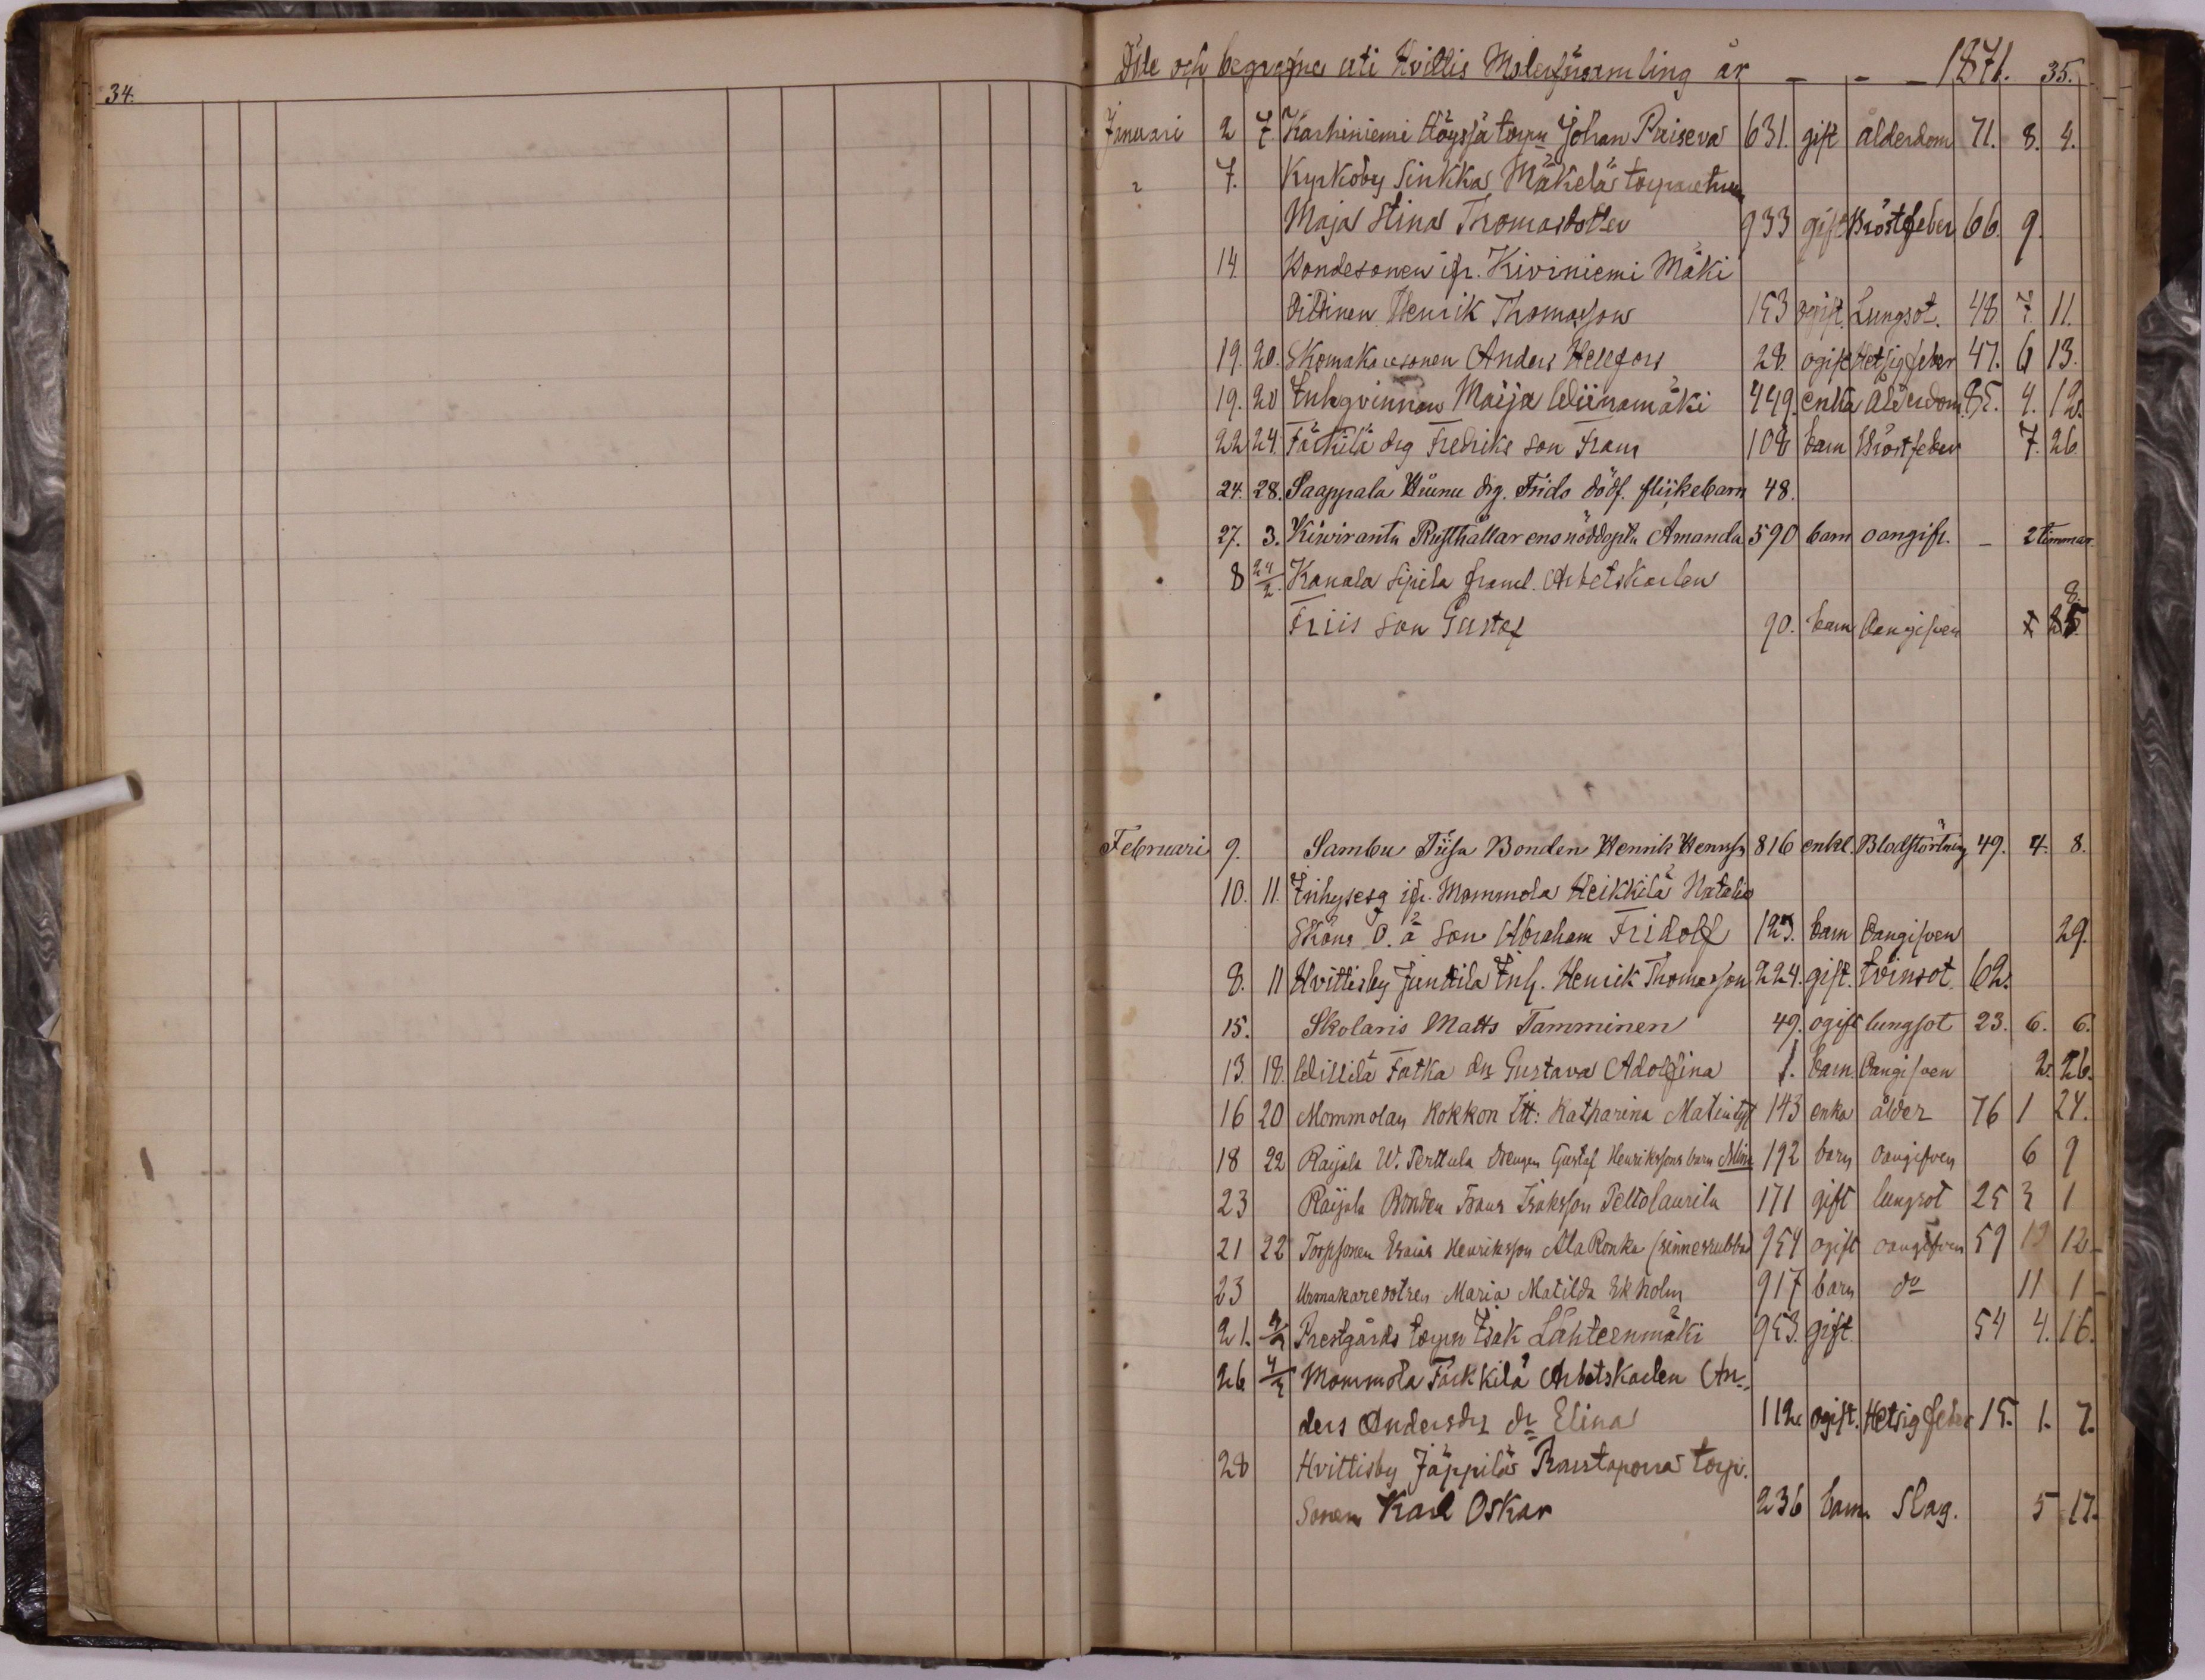 34.
Döde och begrafne uti Hvittis Moderförsamling år - - - 1871. 35.
Januari 2 7 Karhiniemi Höyssä torpn Johan Raiseva 631. gift ålderdom 71. 8. 4.
" 7. Kyrkoby Sinkka Mäkelä torparehun
Maja Stina Thomasdotter 933 gift Bröstfeber 66 9.
14 Bondesonen ifr. Kiviniemi Mäki
Dittinen Henrik Thomasson 153 ogift. Lungsot. 48 7. 11.
19. 20. Skomakaresonen Anders Hellfors 28. ogift Hetsigfeber 47. 6 13.
19. 20 Inhqvinnan Maija Wiinamäki 449. enka Ålderdom. 85. 4. 12.
22 24. Färkilä drg Fredriks son Frans 108 barn Bröstfeber 7. 26.
24. 28. Saappala Hiunu drg. Frids dödf. flickebarn 48.
27. 3. Kiviranta Rusthållarens nöddöpta Amanda 590 barn oangifv. - 2 timmar
8 24/2. Kanala Sipila framl. Arbetskarlen
Friis son Gustaf 90. barn Oangifven 8. 25
Februari 9. Sambu Tiisa Bonden Henrik Henrss 816 enkl. Blodstörtning 49. 4. 8.
10. 11. Inhysesq ifr. Mommola Heikkilä Natalia
Sköns O. ä son Abraham Fridolf 123. barn Oangifven 29.
8. 11 Hvittisby Junttila Inh. Henrik Thomasson 224. gift. tvinsot 62.
15. Skolaris Matts Tamminen 49. ogift lungsot 23. 6. 6.
13. 18. Willilä Fatka dr Gustava Adolfina 1. barn. Oangifven 2. 26.
16 20 Mommolan Kokkon Itt: Katharina Matintyt 143 enka ålder 76 1 24.
18 22 Raijala W. Perttula Drengen Gustaf Henrikssons barn Mina 192 barn oangifven 6 9
23 Raijala Bonden Frans Isaksson Peltolaurila 171 gift lungsot 25 3 1
21 22 Torpsonen Esaias Henriksson Ala Ronka (sinnesrubbad) 954 ogift oangifven 59 12
23 Urmakaredotren Maria Matilda Ekholm 917 barn do 11 1
21. Prestgårds torpn Isak Lähteenmäki 953. gift. 54 4. 16.
26 4/3 Mommola Färkkilä Arbetskarlen An-
ders Andersdr dr Elina 112. ogift. Hetsig feber 15. 1. 7.
28 Hvittisby Jäppilä torp.
Sonen Karl Oskar 236 barn. Slag. 5 17.